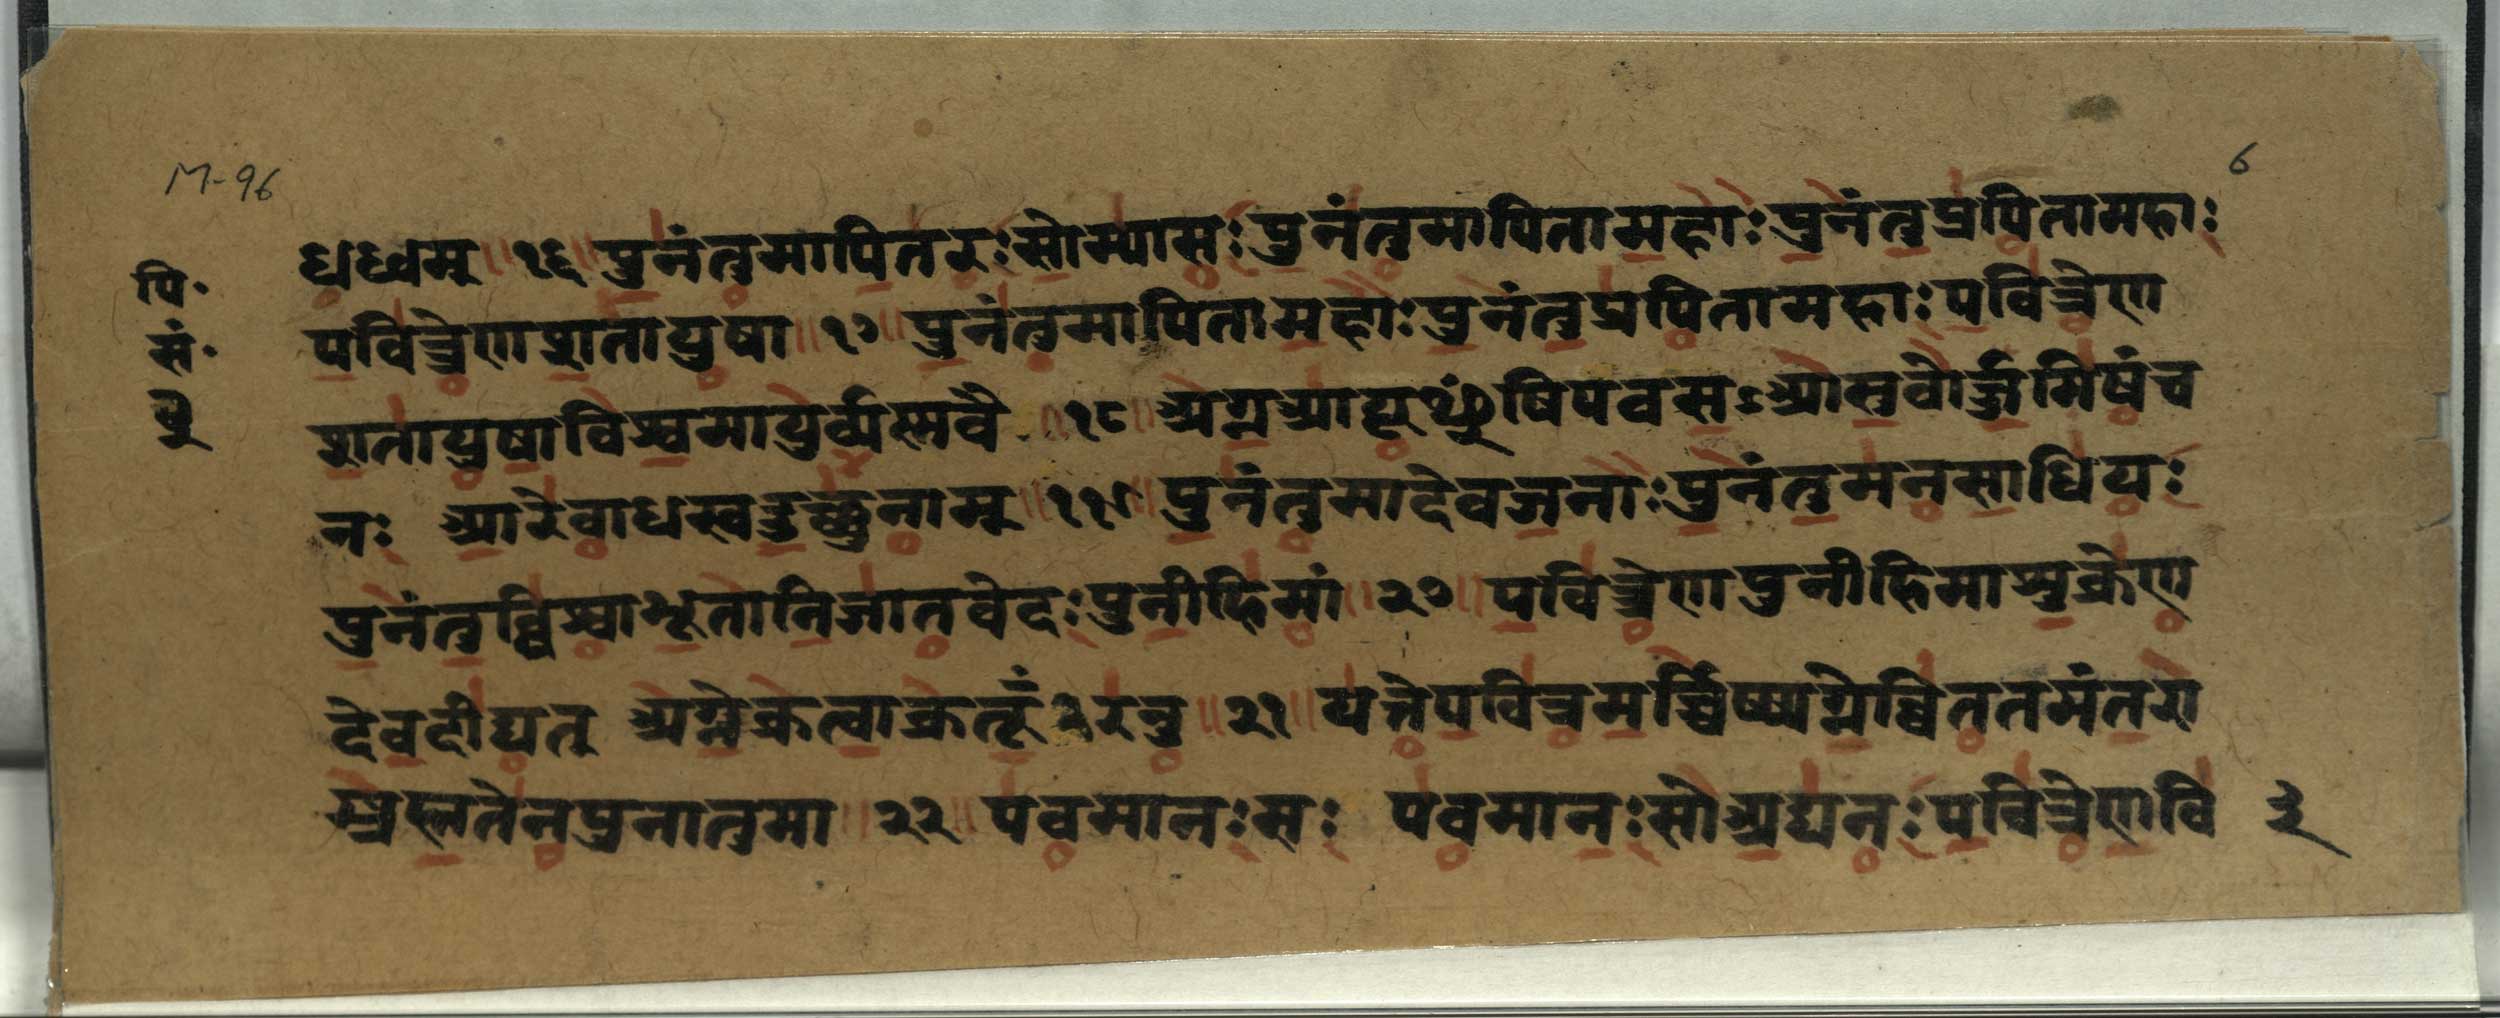 M-96
6
पि॰
सं॰
ध्रु
धध्वम् ॥ १६ ॥ पुनंतुमापितरःसोम्यासःपुनंतुमापितामहाःपुनंतुप्रपितामहाः
पवित्रेणशतायुषा ॥ १७ ॥ पुनंतुमापितामहाःपुनंतुप्रपितामहाःपवित्रेण
शतायुषाविश्वमायुर्व्यस्मवै ॥ १८ ॥ अग्नआयूᳪषिपवसऽआसुवोर्ज्जमिषंच
नः आरेवाधस्वदुच्छुनाम् ॥ १९ ॥ पुनंतुमादेवजनाःपुनंतुमनसाधियः
पुनंतुब्बिश्वाभूतानिजातवेदःपुनीहिमां ॥ २० ॥ पवित्रेणपुनीहिमाशुक्रेण
देवदीद्यत् अग्नेक्रत्वाक्रतूँ३रनु ॥ २१ ॥ यत्तेपवित्रमर्च्चिष्यग्नेब्बिततमंतरा
ब्रह्मतेनपुनातुमा ॥ २२ ॥ पवमानःसः पवमानःसोअद्यनःपवित्रेणवि
३